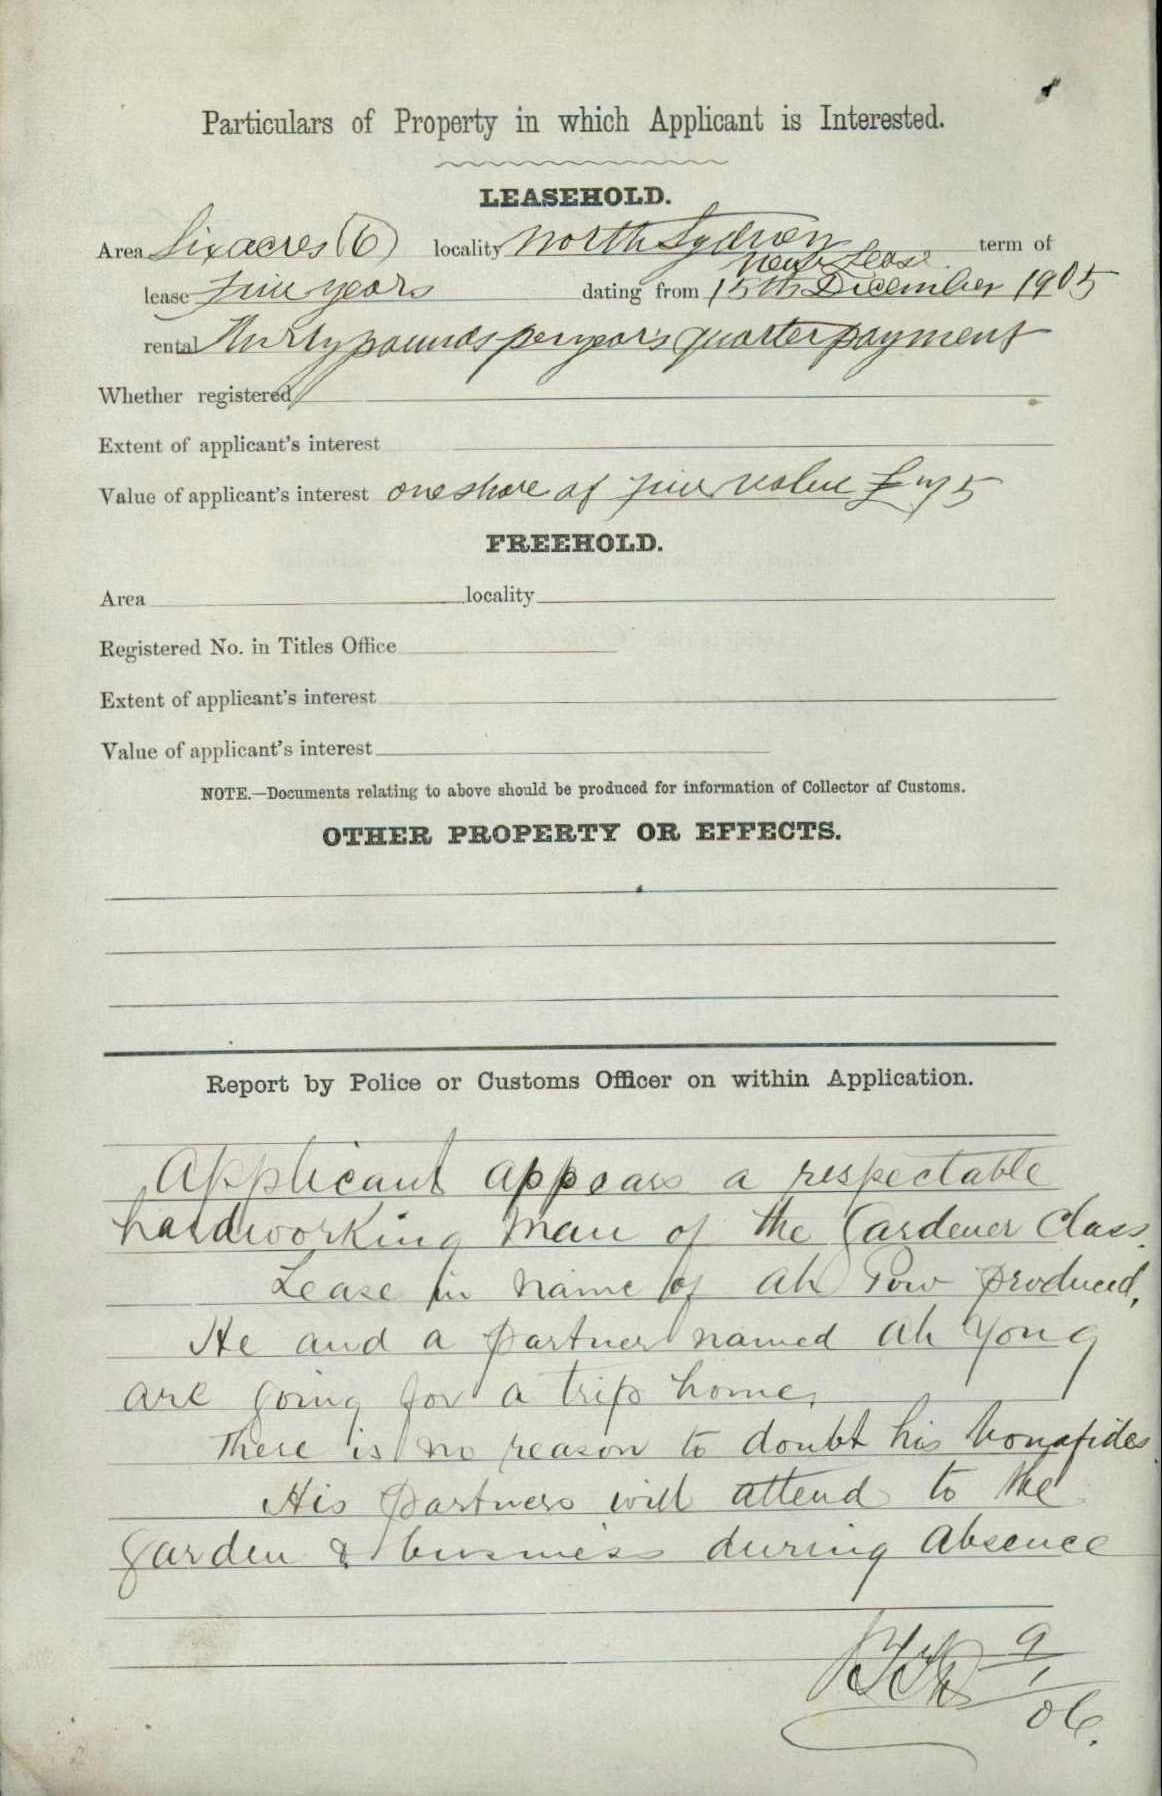 Particulars of Property in which Applicant is Interested.
LEASEHOLD.
Area Six acres (6) locality North Sydney term of
new Lease
lease Five years dating from 15th December 1905
rental Thirty pounds per year's quarter payment
Whether registered
Extent of applicant's interest
Value of applicant's interest one share of five value £
FREEHOLD.
Area locality
Registered No. in Titles Office
Extent of applicant's interest
Value of applicant's interest
NOTE.—Documents relating to above should be produced for information of Collector of Customs.
OTHER PROPERTY OR EFFECTS.
Report by Police or Customs Officer on within Application.
Applicant appears a respectable
hardworking man of the Gardener Class.
Lease in name of Ah Pow produced,
He and a partner named Ah Yong
are going for a trip home.
There is no reason to doubt his bonafides.
His partners will attend to the
garden & business during absence
9/1/06.